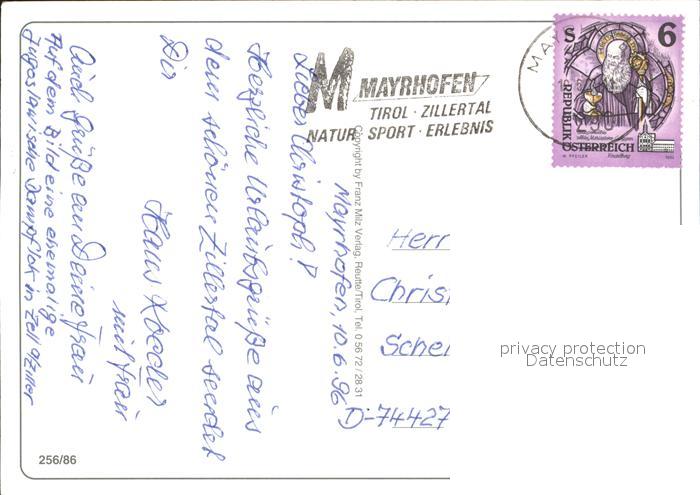 Mayrhofen, 10.6.96
Lieber Christoph!
Herzliche Urlaubsgrüße aus
dem schönen Zillertal sendet
Dir
Hans
mit Frau
Auch Grüße an Deine Frau
Auf dem Bild eine ehemalige
Jugoslawische Dampflok in Zell a/Ziller
M MAYRHOFEN
TIROL · ZILLERTAL
NATUR SPORT · ERLEBNIS
S 6
REPUBLIK
ÖSTERREICH
Copyright by Franz Milz Verlag, Reutte/Tirol, Tel. 0 56 72 / 28 31
Herr
Chris
Sche
D-74427
privacy protection
Datenschutz
256/86